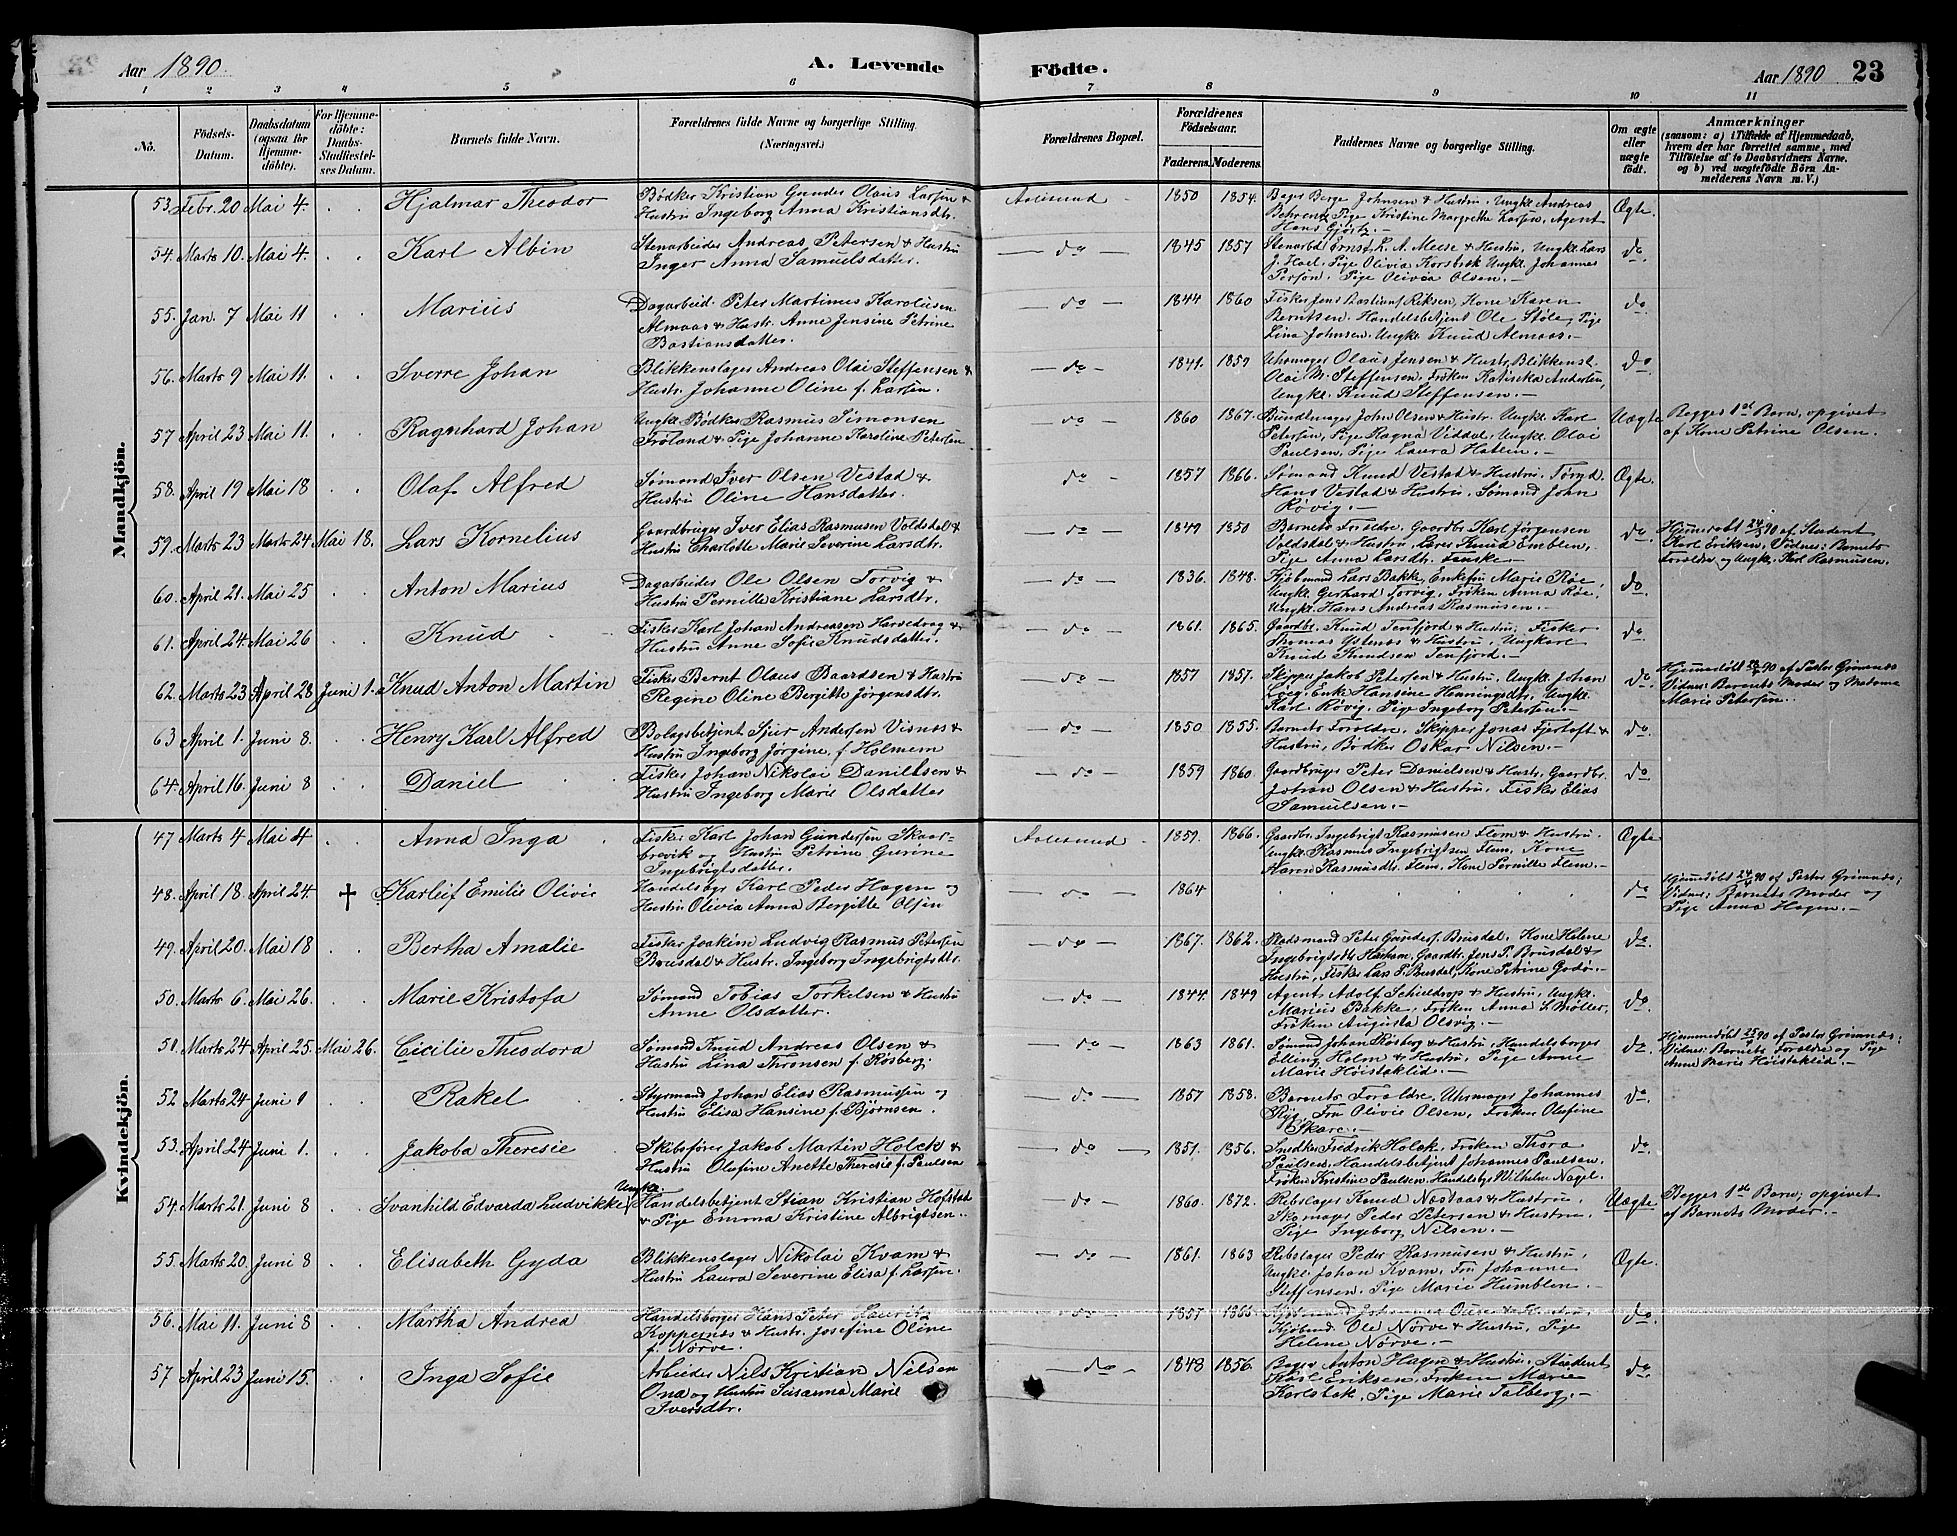 Aar 1890. A. Levende Födte. Aar 1890 23
1 2 3 4 5 6 7 8 9 10 11
No. Födsels-Datum. Daabsdatum (ogsaa for Hjemme-döbte). For Hjemme-döbte: Daabs-Stadfæstel-ses Datum. Barnets fulde Navn. Forældrenes fulde Navne og borgerlige Stilling. (Næringsvei.) Forældrenes Bopæl. Forældrenes Födselsaar. Faderens. Moderens. Faddernes Navne og borgerlige Stilling. Om ægte eller uægte födt. Anmærkninger (saasom: a) i Tilfælde af Hjemmedaab, hvem der har forrettet samme, med Tilföielse af to Daabsvidners Navne. og b) ved uægtefödte Börn An-melderens Navn m. V.)
Mandkjön.
53. Febr. 20 Mai 4. Hjalmar Theodor Bødker Kristian Gunder Olaus Larsen & Aalesund 1850 1854. Bager Berge Johnsen & Hustru, Ungkl Andreas Ægte.
Hustru Ingeborg Anna Kristiansdtr. Behrentz Pige Kristine Margrethe Larsen, Agent
Hans Gjørtz.
54. Marts 10. Mai 4. Karl Albin Stenarbeider Andreas Petersen & Hustru do 1845 1857 Stenarbd Ernst L. A. Melse & Hustru, Ungkl Lars do.
Inger Anna Samuelsdatter. J. Hoel. Pige Olivia Korsbræk Ungkl. Johannes
Persøn. Pige Olivia Olsen.
55. Jan. 7 Mai 11 Marius Dagarbeid. Peter Martinus Karolusen do 1844 1860 Fisker Jens Bastians Riksen, Kone Karen do
Almaas & Hustr. Anne Jensine Petrine Berntsen. Handelsbetjent Ole Støle, Pige
Bastiansdatter. Lina Johnsen. Ungkl. Knud Almaas.
56. Marts 9 Mai 11. Sverre Johan Blikkenslager Andreas Olai Steffensen & do 1841. 1859 Uhrmager Olaus Jensen & Hustr, Blikkensl. do
Hustr. Johanne Oline f. Larsen. Olai M. Steffensen. Frøken Katinka Andersen,
Ungkl. Knud Steffensen.
57 April 23 Mai 11. Ragnhard Johan Ungkl. Bødker Rasmus Simonsen do 1860 1867. Bundtmager John Olsen & Hustr. Ungkl. Karl Uægte Begges 1st Barn, opgivet
Frøland & Pige Johanne Karoline Petersen Petersen, Pige Ragna Viddal. Ungkl. Olai af Kone Petrine Olsen.
Paulsen, Pige Laura Hatlein.
58. April 19 Mai 18 Olaf Alfred Sømand Iver Olsen Vestad & do 1857 1866. Sømand Knud Vestad & Hustru. Ægte.
Hustru Oline Hansdatter. Hans Vestad & Hustru. Sømand John
Røvig.
59. Marts 23 Marts 24 Mai 18. Lars Kornelius Gaardbruger Iver Elias Rasmusen Voldsdal & do 1849 1850 Barnets Forældre. Gaardbr. Karl Jørgensen do. Hjemmedøbt 24/3 90 af Student
Hustru Charlotte Marie Severine Larsdtr. Voldsdal & Hustru, Lærer Knud Emblem, Karl Eriksen, Vidner: Barnets
Pige Anna Larsdtr. Forældre og Ungkl. Karl Rasmusen.
60. April 21. Mai 25 Anton Marius Dagarbeider Ole Olsen Torvig & do 1836. 1848. Kjøbmand Lars Bakke, Enkefru Marie Røe, do
Hustru Pernille Kristiane Larsdtr. Ungkl. Gerhard Torvig, Frøken Anna Røe,
Ungkl. Hans Andreas Rasmusen.
61. April 24. Mai 26 Knud Fisker Karl Johan Andreasen & do 1861. 1865. Gaardbr. Knud Tenfjord & Hustru. Fisker do
Hustru Anne Sofie Knudsdatter. Thomas Ystenæs & Hustru, Ungkarl
Knud Knudsen Tenfjord.
62. Marts 23 April 28 Juni 1. Knud Anton Martin Fisker Bernt Olaus Baardsen & Hustru do 1857 1857. Skipper Jakob Petersen & Hustru. Ungkl. Johan do. Hjemmedøbt 28/4 90 af Pastor Grimnæs
Regine Oline Bergitte Jørgensdtr. Enke Hansine Henningsdtr, Ungkl. Vidner: Barnets Moder og Madame
Karl Røvig, Pige Ingeborg Petersen. Marie Petersen.
63 April 1. Juni 8. Henry Karl Alfred Bolagsbetjent Sjur Andersen Visnæs & do 1850 1855. Barnets Forældre, Skipper Jonas Fjørtoft & do.
Hustru Ingeborg Jørgine f. Holmem Hustru, Bødker Oskar Nilsen.
64. April 16. Juni 8 Daniel Fisker Johan Nikolai Danielsen & do 1859 1860. Gaardbruger Peter Danielsen & Hustr. Gaardbr. do
Hustru Ingeborg Marie Olsdatter Johan Olsen & Hustru. Fisker Elias
Samuelsen.
Kvindekjön.
47 Marts 4 Mai 4 Anna Inga Fisker Karl Johan Gundersen Skaar- Aalesund 1859. 1866. Gaardbr. Ingebrigt Rasmusen Flem & Hustru. Ægte
brevik og Hustru Petrine Gurine Ungkl. Rasmus Ingebrigtsen Flem, Kone
Ingebrigtsdatter. Karen Rasmusdtr. Flem, Kone Pernille Flem.
48. April 18 April 24. † Karleif Emilie Olivie Handelsbgr Karl Peder Hagen og do 1864 do Hjemmedøbt 24/4 90 af Pastor Grimnæs;
Hustru Olivia Anna Bergitte Olsen Vidner: Barnets Moder og
Pige Anna Hagen.
49. April 20. Mai 18 Bertha Amalie Fisker Joakim Ludvig Rasmus Petersen do 1867. 1862. Pladsmand Peter Gunders. Brusdal. Kone Helene do.
Brusdal & Hustr. Ingeborg Ingebrigtsdtr. Ingebrigtsdtr Harham, Gaardbr. Jens P. Brusdal &
Hustru, Fisker Lars P. Brusdal, Kone Petrine Godø.
50. Marts 6. Mai 26. Marie Kristofa Sømand Tobias Torkelsen & Hustru do 1844. 1849 Agent Adolf Schieldrop & Hustru, Ungkl. do
Anne Olsdatter. Marius Bakke, Frøken Anna S. Møller,
Frøken Augusta Olsvig.
51. Marts 24 April 25. Mai 26. Cicilie Theodora Sømand Knud Andreas Olsen & do 1863 1861. Sømand Johan Røsberg & Hustru, Handelsborger do. Hjemmedøbt 25/4 90 af Pastor Grimnæs;
Hustru Lina Thronsen f. Røsberg. Elling Holm & Hustru, Pige Anne Vidner: Barnets Forældre og Pige
Marie Høistaklid. Anne Marie Høistaklid.
52 Marts 24 Juni 1 Rakel Styrmand Johan Elias Rasmussen og do 1857 1858. Barnets Forældre, Uhrmager Johannes do.
Hustru Elisa Hansine f. Bjørnsen. Ryg, Fru Olivie Olsen, Frøken Olufine
Skare.
53. April 24 Juni 1. Jakoba Theresie Skibsfører Jakob Martin Holck & do 1851. 1856. Snedker Fredrik Holck. Frøken Thora do.
Hustru Olufine Anette Theresie f. Paulsen Paulsen, Handelsbetjent Johannes Paulsen.
Frøken Kristine Paulsen. Handelsbgr Wilhelm Nagel.
54. Marts 21. Juni 8 Svanhild Edvarda Ludvikke Ungkl. Handelsbetjent Stian Kristian Hofstad do 1860. 1872. Rebslager Knud Næstaas & Hustru, Uægte Begges 1st Barn; opgivet
& Pige Emma Kristine Albrigtsen. Skomager Peder Petersen & Hustru. af Barnets Moder.
Pige Ingeborg Nilsen.
55. Marts 20. Juni 8 Elisabeth Gyda Blikkenslager Nikolai Kvam & do 1861. 1863 Rebslager Peder Rasmusen & Hustru, Ægte.
Hustru Laura Severine Elisa f. Larsen. Ungkl. Johan Kvam, Fru Johanne
Steffensen. Pige Marie Humblen.
56. Mai 11. Juni 8 Martha Andrea Handelsborger Hans Peter Laurits do 1857 1866. Kjøbmand Johannes & Hustru, do
Koppernæs & Hustr. Josefine Oline Kjøbmd. Ole Nørve & Hustru, Pige
f. Nørve. Helene Nørve.
57 April 23 Juni 15. Inga Sofie Arbeider Nils Kristian Nilsen do 1848 1856. Bager Anton Hagen & Hustru, Student do
Ona og Hustru Susanna Marie Karl Eriksen, Frøken Marie
Iversdtr. Karlsbak, Pige Marie Talberg.